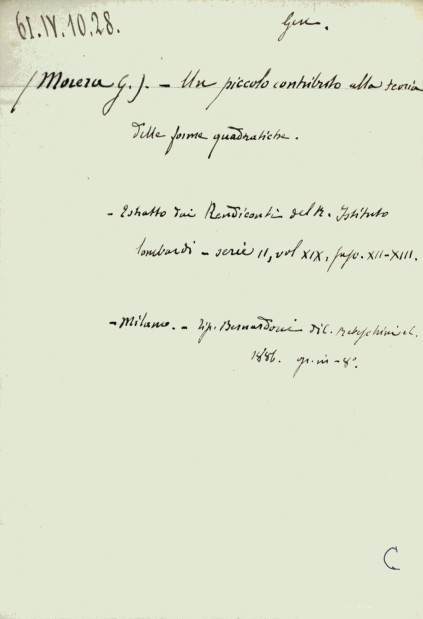 61.IV.10.28.
Gen.
(Morera G.). - Un piccolo contributo alla teoria
delle forme quadratiche.
- Estratto dai Rendiconti del R. Istituto
lombardi - serie II, vol XIX, fasc. XII-XIII.
- Milano. - Tip. Bernardoni di C. Rebeschini e C.
1886. op. in-8°.
C